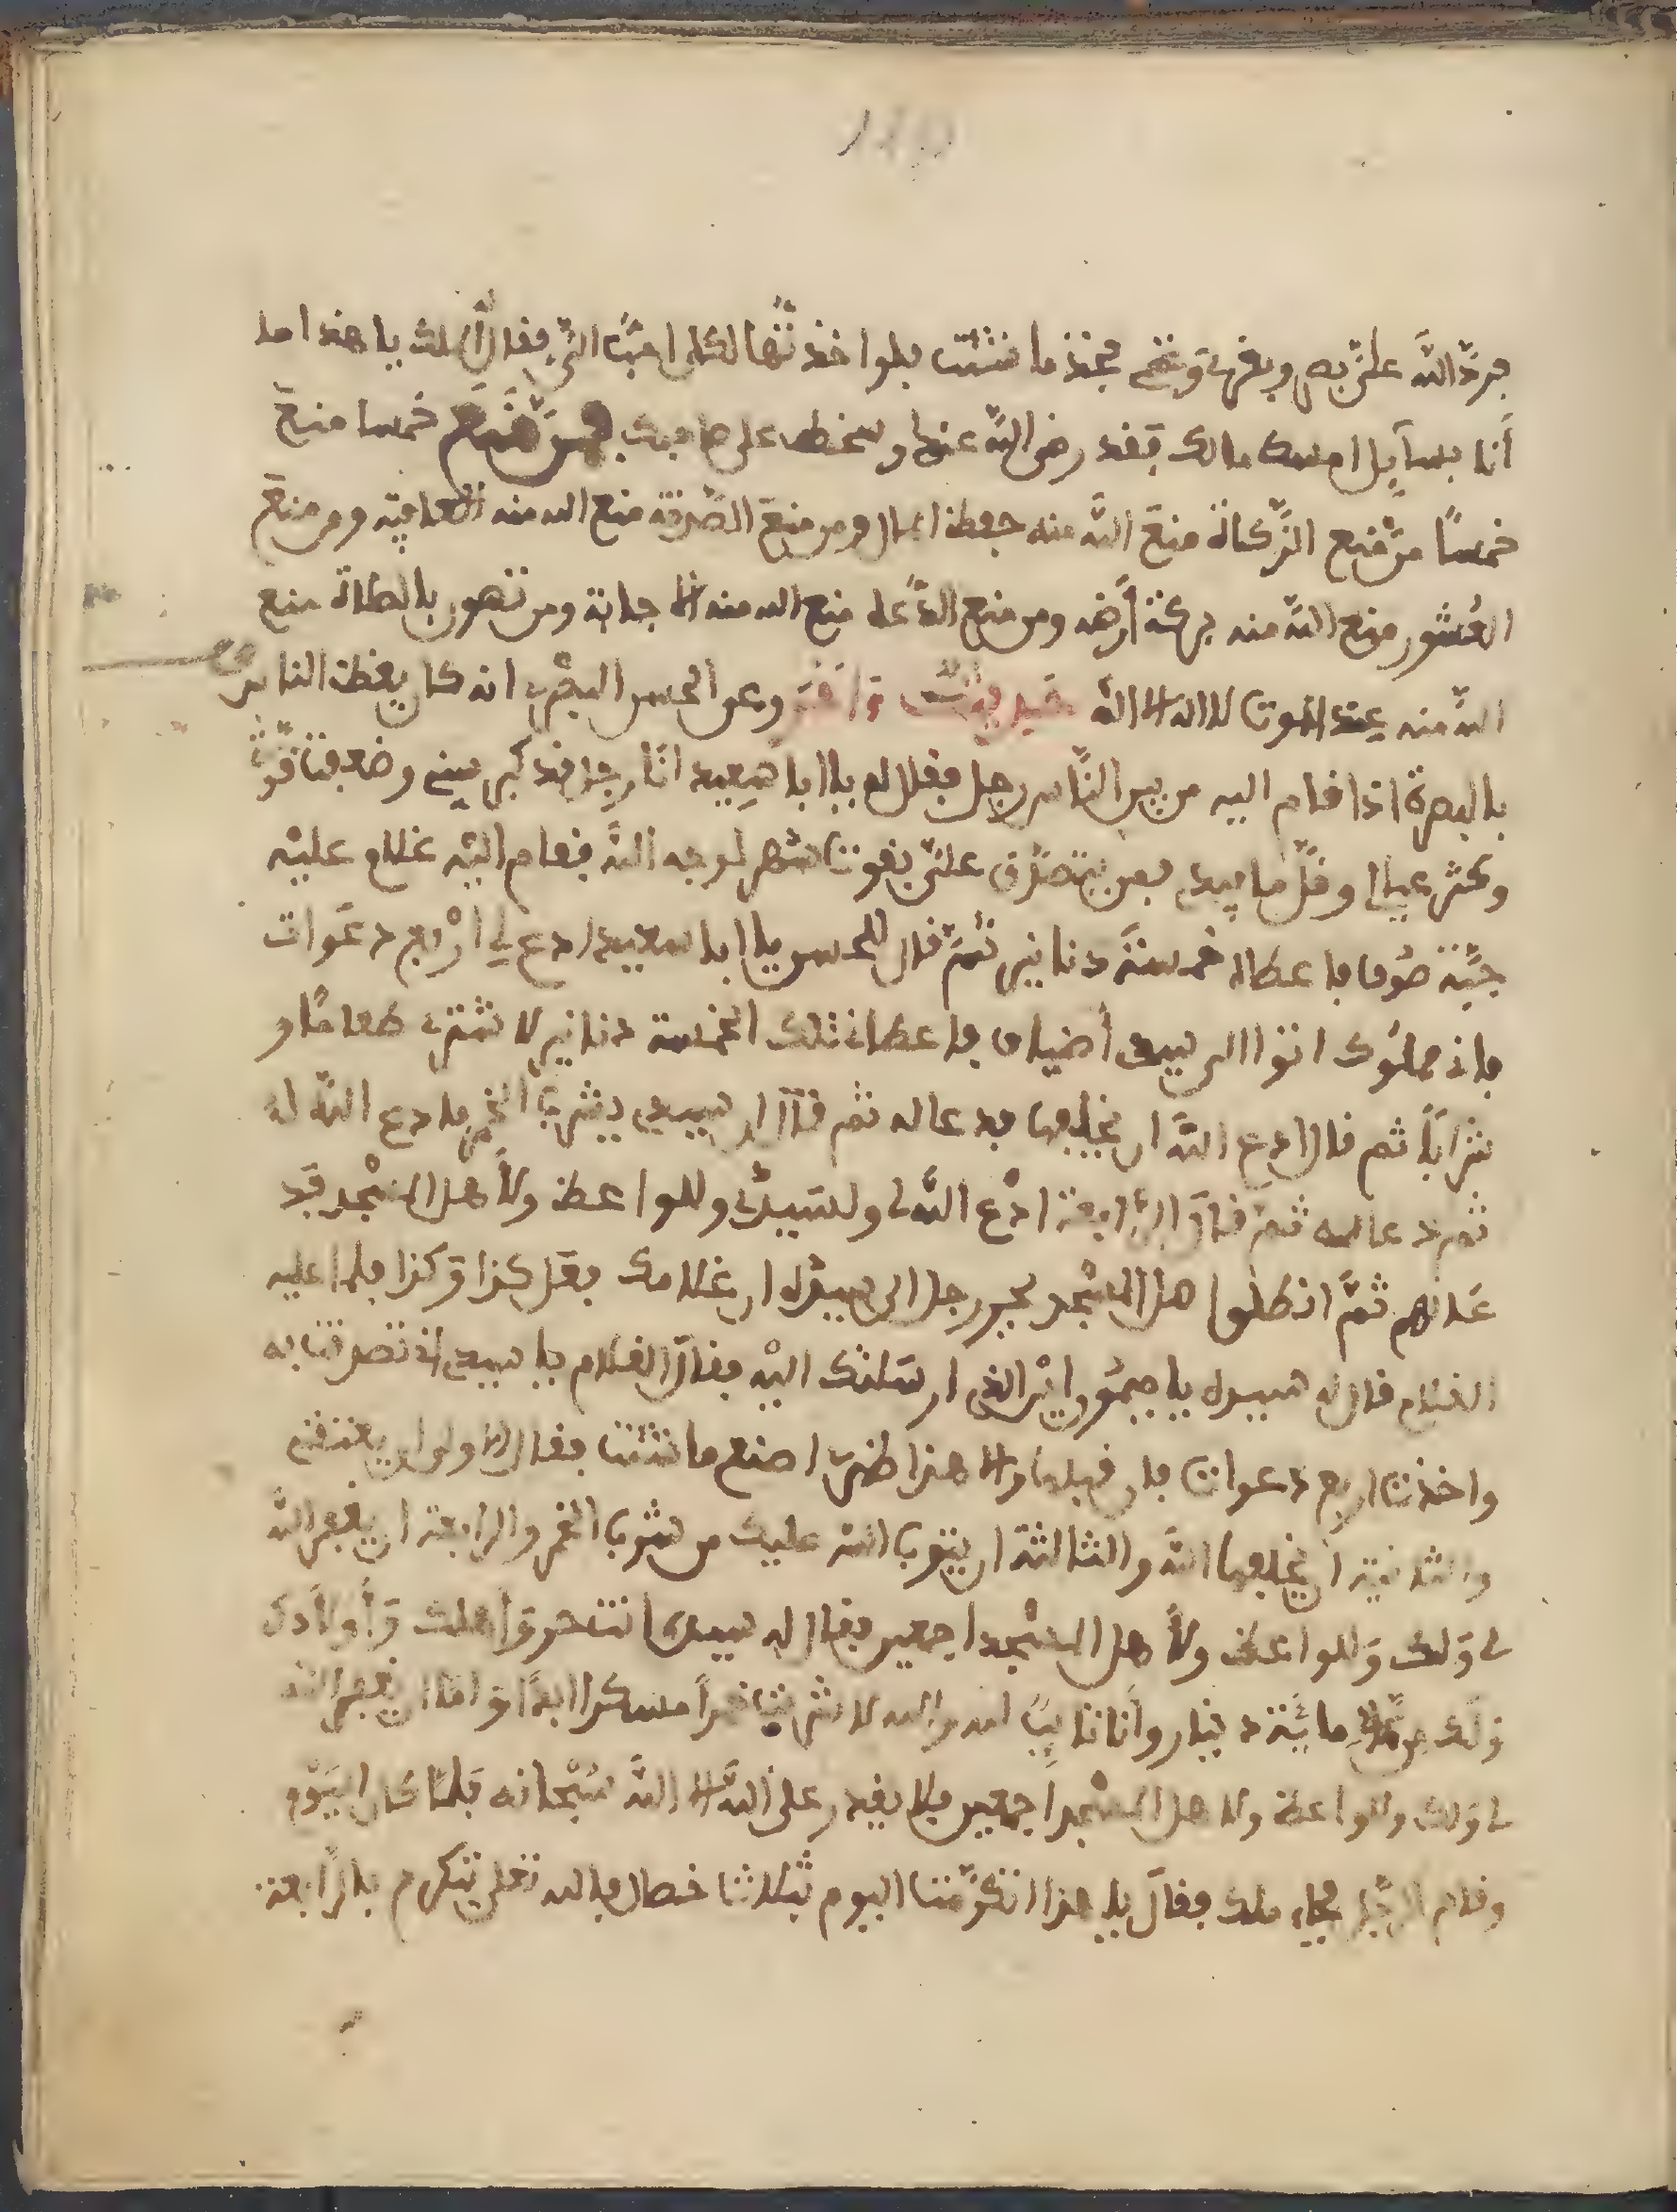 فردّ الله عليّ بصري وبقري وغنمي فخذ ما شئت فلو اخذتها لكان احبّ اليّ فقال الملك يا هذا ما
أنا بسآيل امسك مالك فقد رضي الله عنك وسخط على صاحبك من منع خمسا منع
خمسًا من منع الزّكاة منع الله منه حفظ المال ومن منع الصّدقة منع الله منه العافية ومن منع
العُشور منع الله منه بركة أرضه ومن منع الدّعا منع الله منه الاجابة ومن تهون بالصلاة منع
الله منه عند الموت لا اله الا الله وعن الحسن البصري انه كان يعظ الناس
بالبصرة اذا قام اليه من بين النّاس رجل فقال له يا ابا سعيد انا رجل قد كبر سني وضعفت قوّتي
وكثر عيالي وقلّ ما بيدي فمن يتصدّق عليّ بقوت شهر لوجه الله فقام اليه غلام عليه
جبّة صوف فاعطاه خمسة دنانير ثمّ قال للحسن يا ابا سعيد ادع لي أرْبع دعَوات
فاني مملوك اتوا الى سيدي أضياف فاعطاني تلك الخمسة دنانير لاشتري طعامًا و
شرابًا ثم قال ادع الله ان يخلفها فدعا له ثم قال ان سيدي يشرب الخمر فادع الله له
ثم دعا له ثمّ قال الرابعة ادْع الله لي ولسيدي وللواعظ ولأهل المسْجد فدعا
لهم ثمّ انطلوا هل المسْجد فجرى رجل الى سيده ان غلامك فعل كذا وكذا فلما اتاه
الغلام قال له سيده يا ميمُون ايْن الذي ارسَلتك اليْه فقال الغلام يا سيدي اني تصدقت به
واخذت اربع دعوات فان قبلها والا هذا ظهري اصنع ما شئت فقال الاولى ان يعتقني
والثانية ان يخلفها الله والثالثة ان يتوب الله عليك من شرب الخمر والرابعة ان يغفر الله
لي وَلك وَللواعظ ولأهل المسْجد اجمعين فقال له سيده انت حر وَأهلك وَأولادك
وَلك من مالي مائة دينار وأنا تايبٌ لله والله لا شربت خمراً مسكرا ابداً واما ان يغفر الله
لي وَلك وللواعظ ولاهل المسْجد اجمعين فلا يقدر على الله الا الله سُبْحانه فلمّا كان اليَوْم
وقام الرّجل فجاء ملك فقال يا هذا انك كرَّمت اليوم ثلاثا خصال فالله تعلى يتكرم بالرّابعة